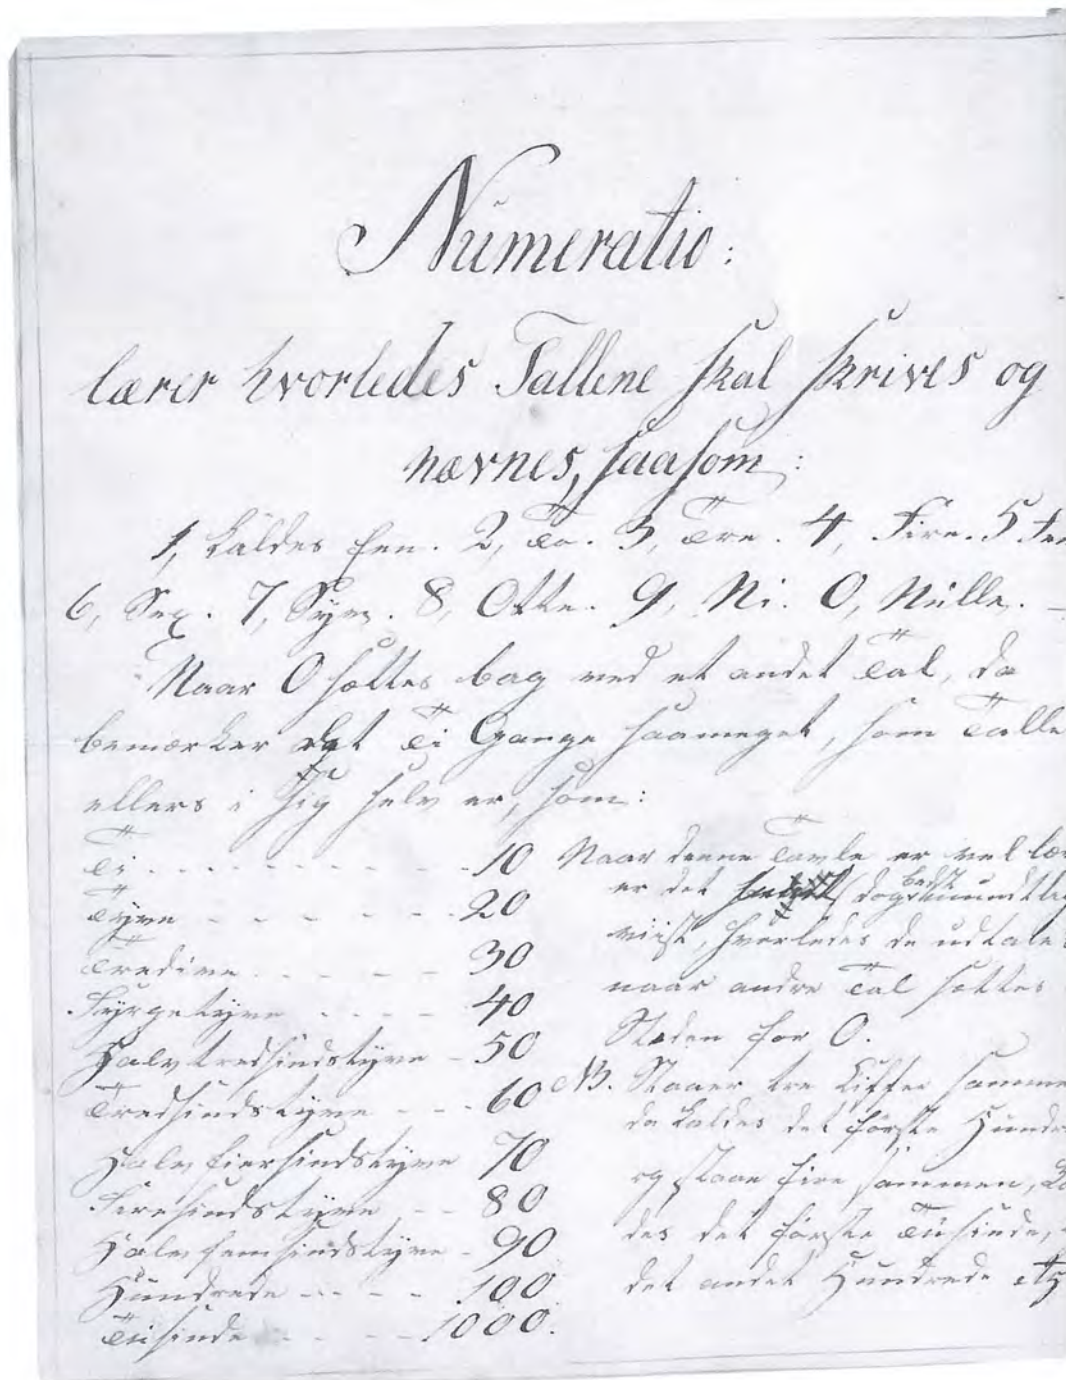 Numeratio:
lærer hvorledes Tallene skal skrives og
nævnes, saasom:
1, kaldes Een. 2, To. 3, Tre. 4, Fire. 5 Fem
6, Sex. 7, Syv. 8, Otte. 9, Ni. 0, Nulle. –
Naar 0 sættes bag ved et andet Tal, da
bemærker det Ti Gange saameget, som Talle
ellers i sig selv er, som:
Ti . . . . . . . . 10
Tyve - - - - - 20
Tredive - - - - - 30
Fyrgetyve - - - - 40
Halvtredsindstyve - 50
Tredsindstyve - - - 60
Halvfiersindstyve 70
Firesindstyve - - 80
Halvfemsindstyve - 90
Hundrede - - - - 100
Tusinde - - - - 1000.
Naar denne Tavle er vel læ
er det dog bedst mundtlig
viist, hvorledes de udtale
naar andre Tal sættes
Steden for 0.
NB. Staaer tre Ziffer samme
da kaldes det første Hundr
og staae fire sammen, ka
des det første Tusinde,
det andet Hundrede etz